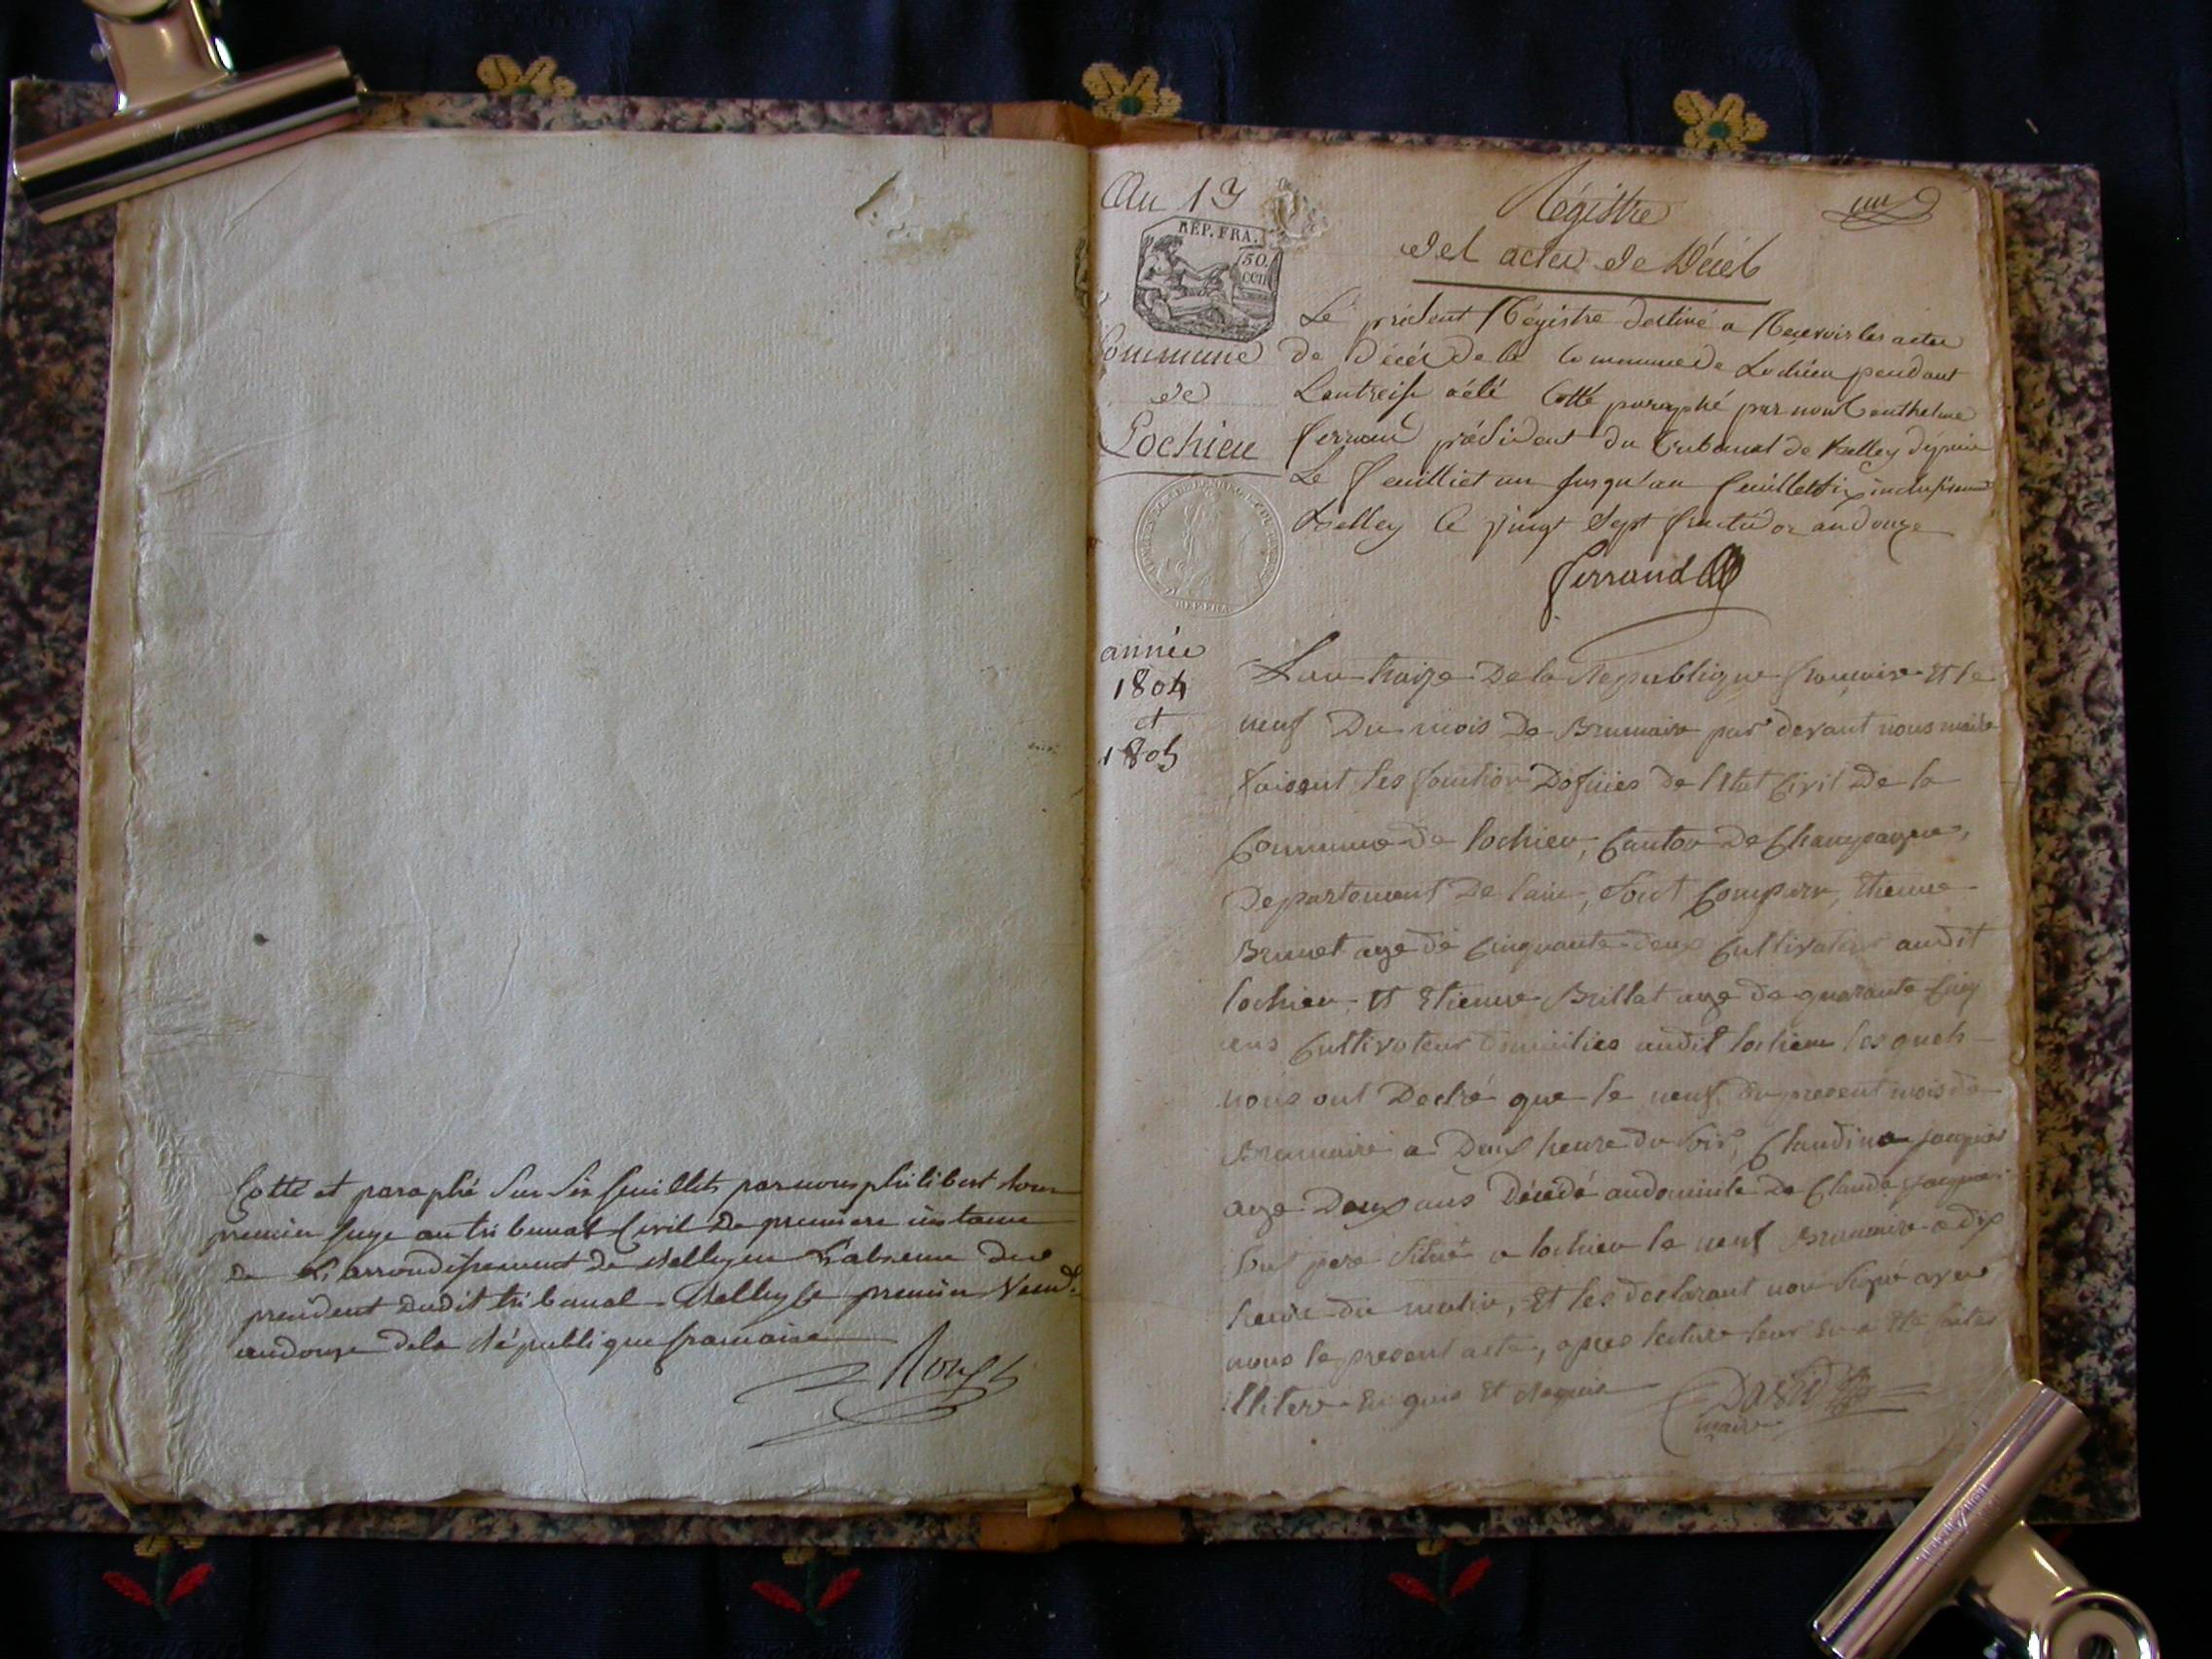 Cotté et paraphé Sur Six feuillets par nous philibert
premier juge au tribunal Civil de premiere instance
de L'arrondissement de Belley en L'absence du
president dudit tribunal Belley le premier Vend.re
an douze de la république francaise
Rouss
An 13
REP. FRA.
50.
CEN
Commune
de
Lochieu
année
1804
et
1805
Régistre
des actes de Décés
un
Le présent Régistre destiné a Recevoir les actes
de Décés de la Commune de Lochieu pendant
L'an treise a été Cotté paraphé par nous Benthelme
ferrand président du Tribunal de Belley dépuis
Le feuillet un jusqu'au feuillet six inclusivement
Belley le vingt Sept fructidor an douze
ferrand
L'an traize De la Republique francaise Et le
neuf Du mois De Brumaire par devant nous maire
faisant les fonction Dofficies de l'Etat Civil De la
Commune de lochieu, Canton De Champagne,
Departement De lain, Sont Comparu, Etienne
Brunet age de Cinquante deux Cultivateur audit
lochieu Et Etienne Brillat age de quarante Cinq
ans Cultivateur Domicilies audit lochieu lesquels
nous ont Declré que le neuf du present mois de
Brumaire a Deux heure du soir, Claudine
age Deux ans Décedé au domicile De Claude
Son pere Situé a lochieu le neuf Brumaire a dix
heure du matin, Et les declarant non Signé avec
nous le present acte, apres lecture leur En a Eté faites
Illitere Enquis Et Requis
David
maire